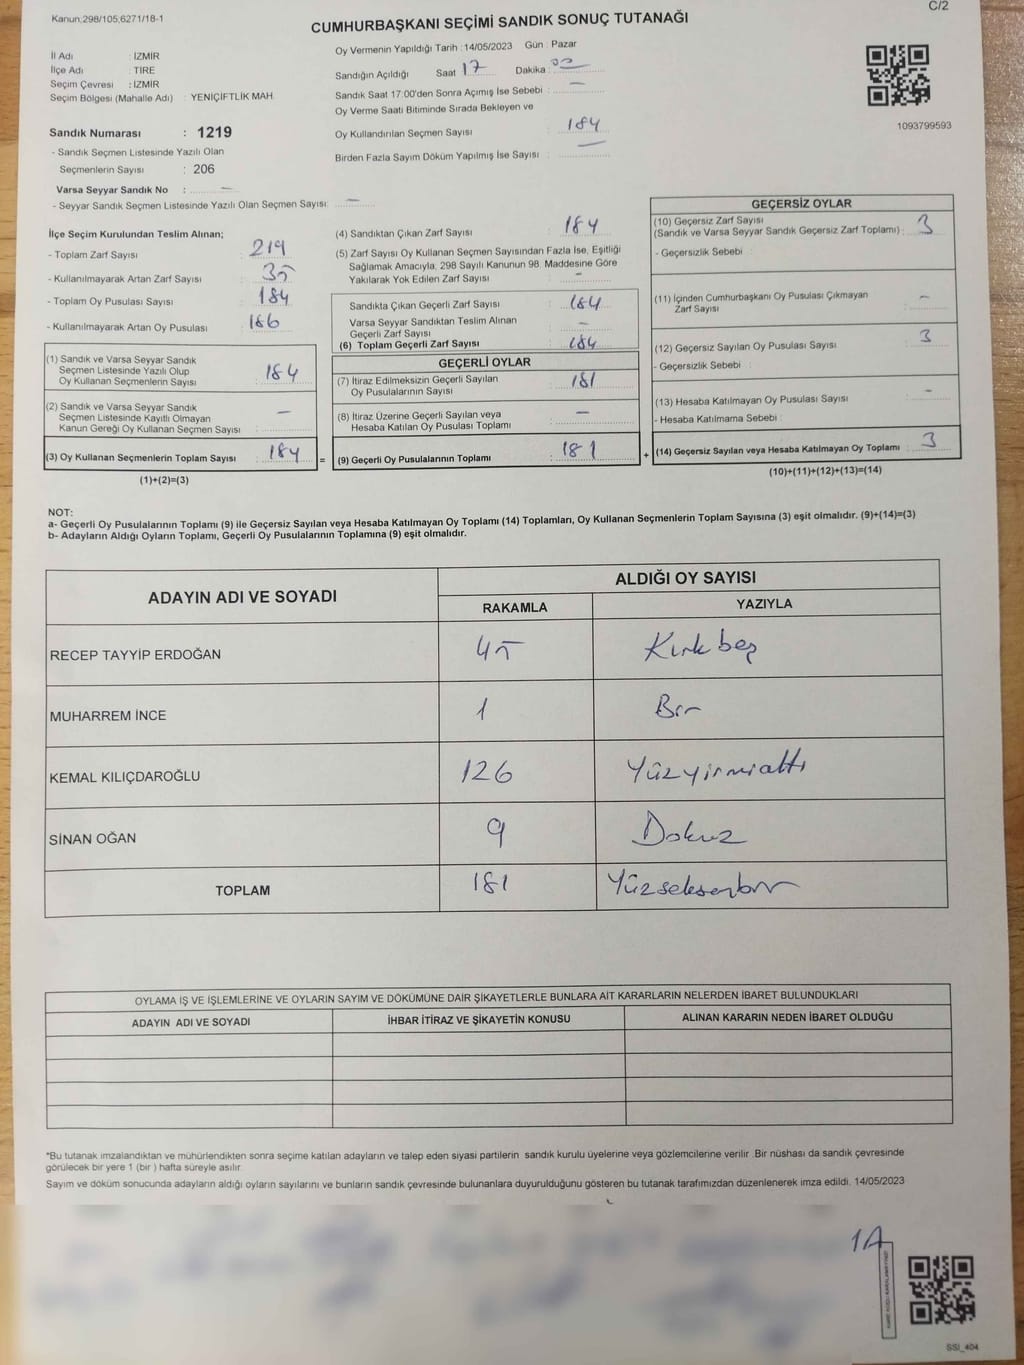 Kanun:298/105;6271/18-1
C/2
CUMHURBAŞKANI SEÇİMİ SANDIK SONUÇ TUTANAĞI
İl Adı : İZMİR
İlçe Adı : TİRE
Seçim Çevresi : İZMİR
Seçim Bölgesi (Mahalle Adı) : YENİÇİFTLİK MAH.
Sandık Numarası : 1219
- Sandık Seçmen Listesinde Yazılı Olan
Seçmenlerin Sayısı : 206
Varsa Seyyar Sandık No : –
- Seyyar Sandık Seçmen Listesinde Yazılı Olan Seçmen Sayısı: –
Oy Vermenin Yapıldığı Tarih :14/05/2023 Gün : Pazar
Sandığın Açıldığı Saat 17 Dakika : 00
Sandık Saat 17:00'den Sonra Açımış İse Sebebi : –
Oy Verme Saati Bitiminde Sırada Bekleyen ve
Oy Kullandırılan Seçmen Sayısı : 184
Birden Fazla Sayım Döküm Yapılmış İse Sayısı : –
1093799593
İlçe Seçim Kurulundan Teslim Alınan;
- Toplam Zarf Sayısı : 219
- Kullanılmayarak Artan Zarf Sayısı : 35
- Toplam Oy Pusulası Sayısı : 184
- Kullanılmayarak Artan Oy Pusulası : 186
(1) Sandık ve Varsa Seyyar Sandık
Seçmen Listesinde Yazılı Olup
Oy Kullanan Seçmenlerin Sayısı : 184
(2) Sandık ve Varsa Seyyar Sandık
Seçmen Listesinde Kayıtlı Olmayan
Kanun Gereği Oy Kullanan Seçmen Sayısı : –
(3) Oy Kullanan Seçmenlerin Toplam Sayısı : 184
(1)+(2)=(3)
(4) Sandıktan Çıkan Zarf Sayısı : 184
(5) Zarf Sayısı Oy Kullanan Seçmen Sayısından Fazla İse, Eşitliği
Sağlamak Amacıyla, 298 Sayılı Kanunun 98. Maddesine Göre
Yakılarak Yok Edilen Zarf Sayısı : –
Sandıkta Çıkan Geçerli Zarf Sayısı : 184
Varsa Seyyar Sandıktan Teslim Alınan
Geçerli Zarf Sayısı : –
(6) Toplam Geçerli Zarf Sayısı : 184
GEÇERLİ OYLAR
(7) İtiraz Edilmeksizin Geçerli Sayılan
Oy Pusulalarının Sayısı : 181
(8) İtiraz Üzerine Geçerli Sayılan veya
Hesaba Katılan Oy Pusulası Toplamı : –
= (9) Geçerli Oy Pusulalarının Toplamı : 181
GEÇERSİZ OYLAR
(10) Geçersiz Zarf Sayısı
(Sandık ve Varsa Seyyar Sandık Geçersiz Zarf Toplamı) : 3
- Geçersizlik Sebebi :
(11) İçinden Cumhurbaşkanı Oy Pusulası Çıkmayan
Zarf Sayısı : –
(12) Geçersiz Sayılan Oy Pusulası Sayısı : 3
- Geçersizlik Sebebi :
(13) Hesaba Katılmayan Oy Pusulası Sayısı : –
- Hesaba Katılmama Sebebi :
+ (14) Geçersiz Sayılan veya Hesaba Katılmayan Oy Toplamı : 3
(10)+(11)+(12)+(13)=(14)
NOT:
a- Geçerli Oy Pusulalarının Toplamı (9) ile Geçersiz Sayılan veya Hesaba Katılmayan Oy Toplamı (14) Toplamları, Oy Kullanan Seçmenlerin Toplam Sayısına (3) eşit olmalıdır. (9)+(14)=(3)
b- Adayların Aldığı Oyların Toplamı, Geçerli Oy Pusulalarının Toplamına (9) eşit olmalıdır.
ADAYIN ADI VE SOYADI ALDIĞI OY SAYISI
RAKAMLA YAZIYLA
RECEP TAYYİP ERDOĞAN 45 Kırkbeş
MUHARREM İNCE 1 Bir
KEMAL KILIÇDAROĞLU 126 Yüzyirmialtı
SİNAN OĞAN 9 Dokuz
TOPLAM 181 Yüzseksenbir
OYLAMA İŞ VE İŞLEMLERİNE VE OYLARIN SAYIM VE DÖKÜMÜNE DAİR ŞİKAYETLERLE BUNLARA AİT KARARLARIN NELERDEN İBARET BULUNDUKLARI
ADAYIN ADI VE SOYADI İHBAR İTİRAZ VE ŞİKAYETİN KONUSU ALINAN KARARIN NEDEN İBARET OLDUĞU
*Bu tutanak imzalandıktan ve mühürlendikten sonra seçime katılan adayların ve talep eden siyasi partilerin sandık kurulu üyelerine veya gözlemcilerine verilir .Bir nüshası da sandık çevresinde
görülecek bir yere 1 (bir ) hafta süreyle asılır.
Sayım ve döküm sonucunda adayların aldığı oyların sayılarını ve bunların sandık çevresinde bulunanlara duyurulduğunu gösteren bu tutanak tarafımızdan düzenlenerek imza edildi. 14/05/2023
1A
SSI_404